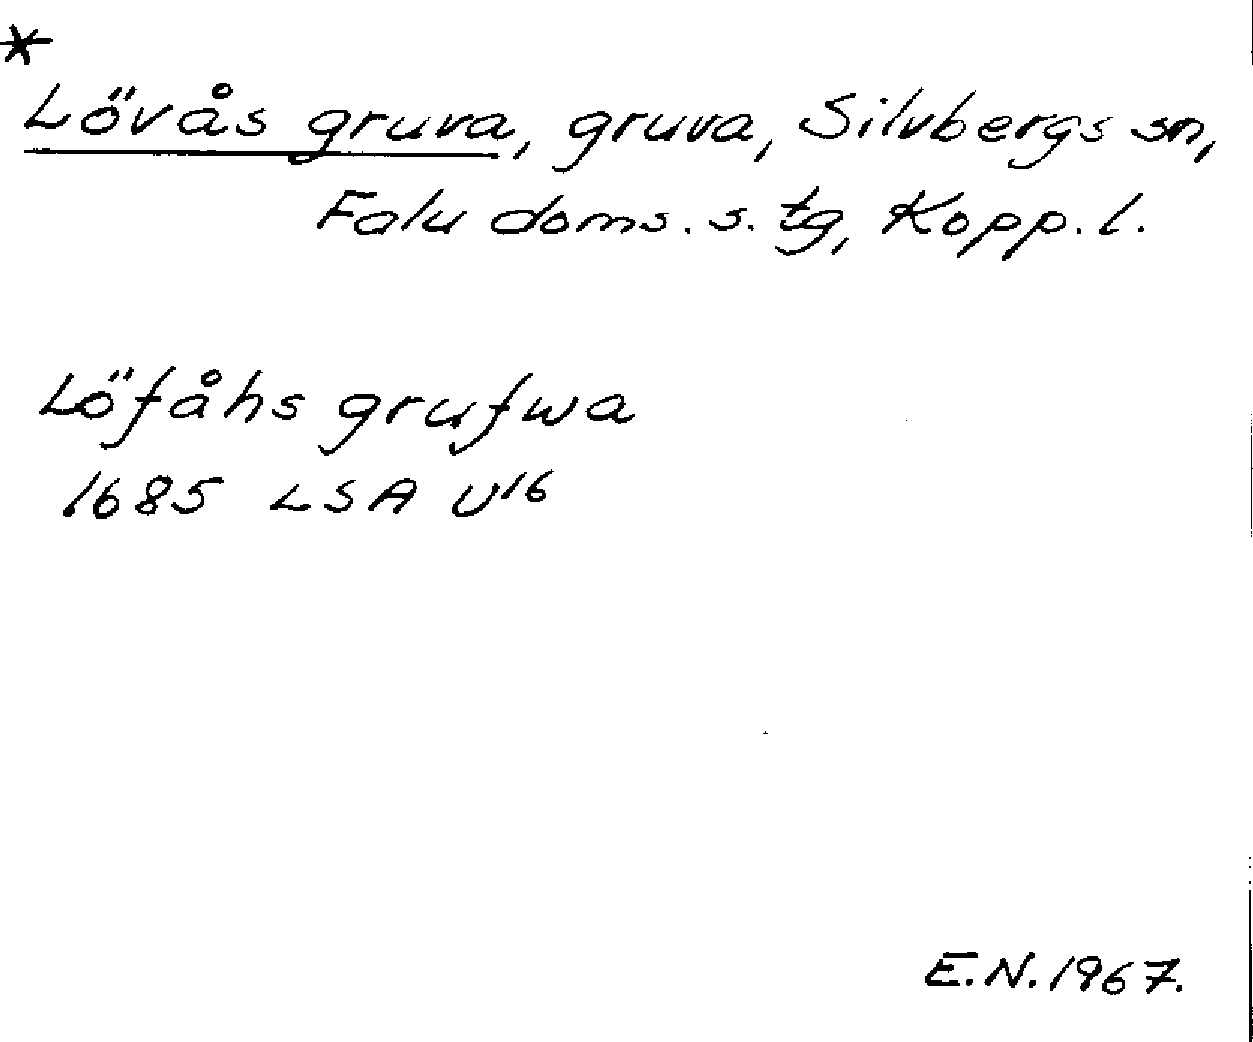 *
Lövås gruva, gruva, Silvbergs sn,
Falu doms. s. tg, Kopp. l.
Löfåhs grufwa
1685 LSA U16
E.N. 1967.